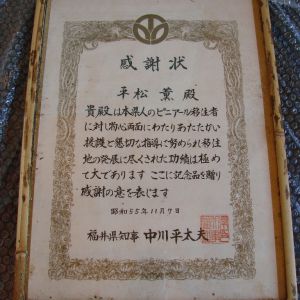 感謝状
平松 薫 殿
貴殿は本県人のピニアール移住者
に対し物心両面にわたりあたたかい
援護と懇切な指導に努められ移住
地の発展に尽くされた功績は極め
て大であります ここに記念品を贈り
感謝の意を表します
昭和55年11月7日
福井県知事 中川平太夫